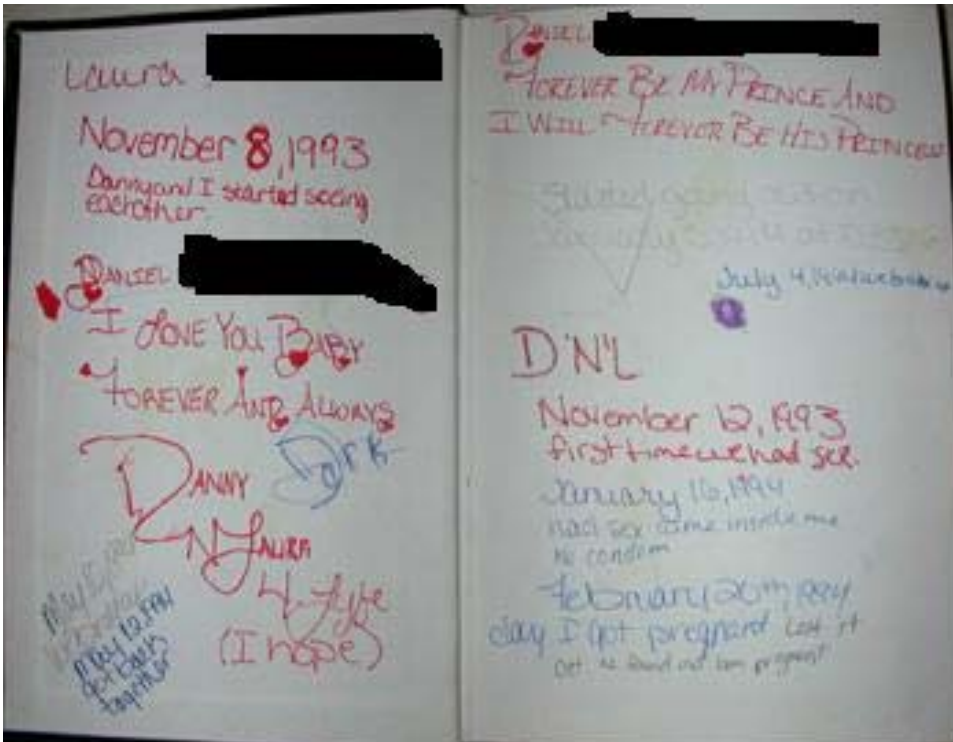 Laura
November 8, 1993
Danny and I started seeing
eachother
DANIEL
I LOVE YOU BABY
FOREVER AND ALWAYS
DANNY
N LAURA
4-Lyfe
(I hope)
May 12, 1994
Got Back
together
DANIEL
FOREVER BE MY PRINCE AND
I WILL FOREVER BE HIS PRINCESS
Started going out on
January
July 4,
D'N'L
November 12, 1993
first time we had sex.
January 16, 1994
had sex came inside me
no condom
February 20th, 1994
day I got pregnant Lost it
found out I am pregnant